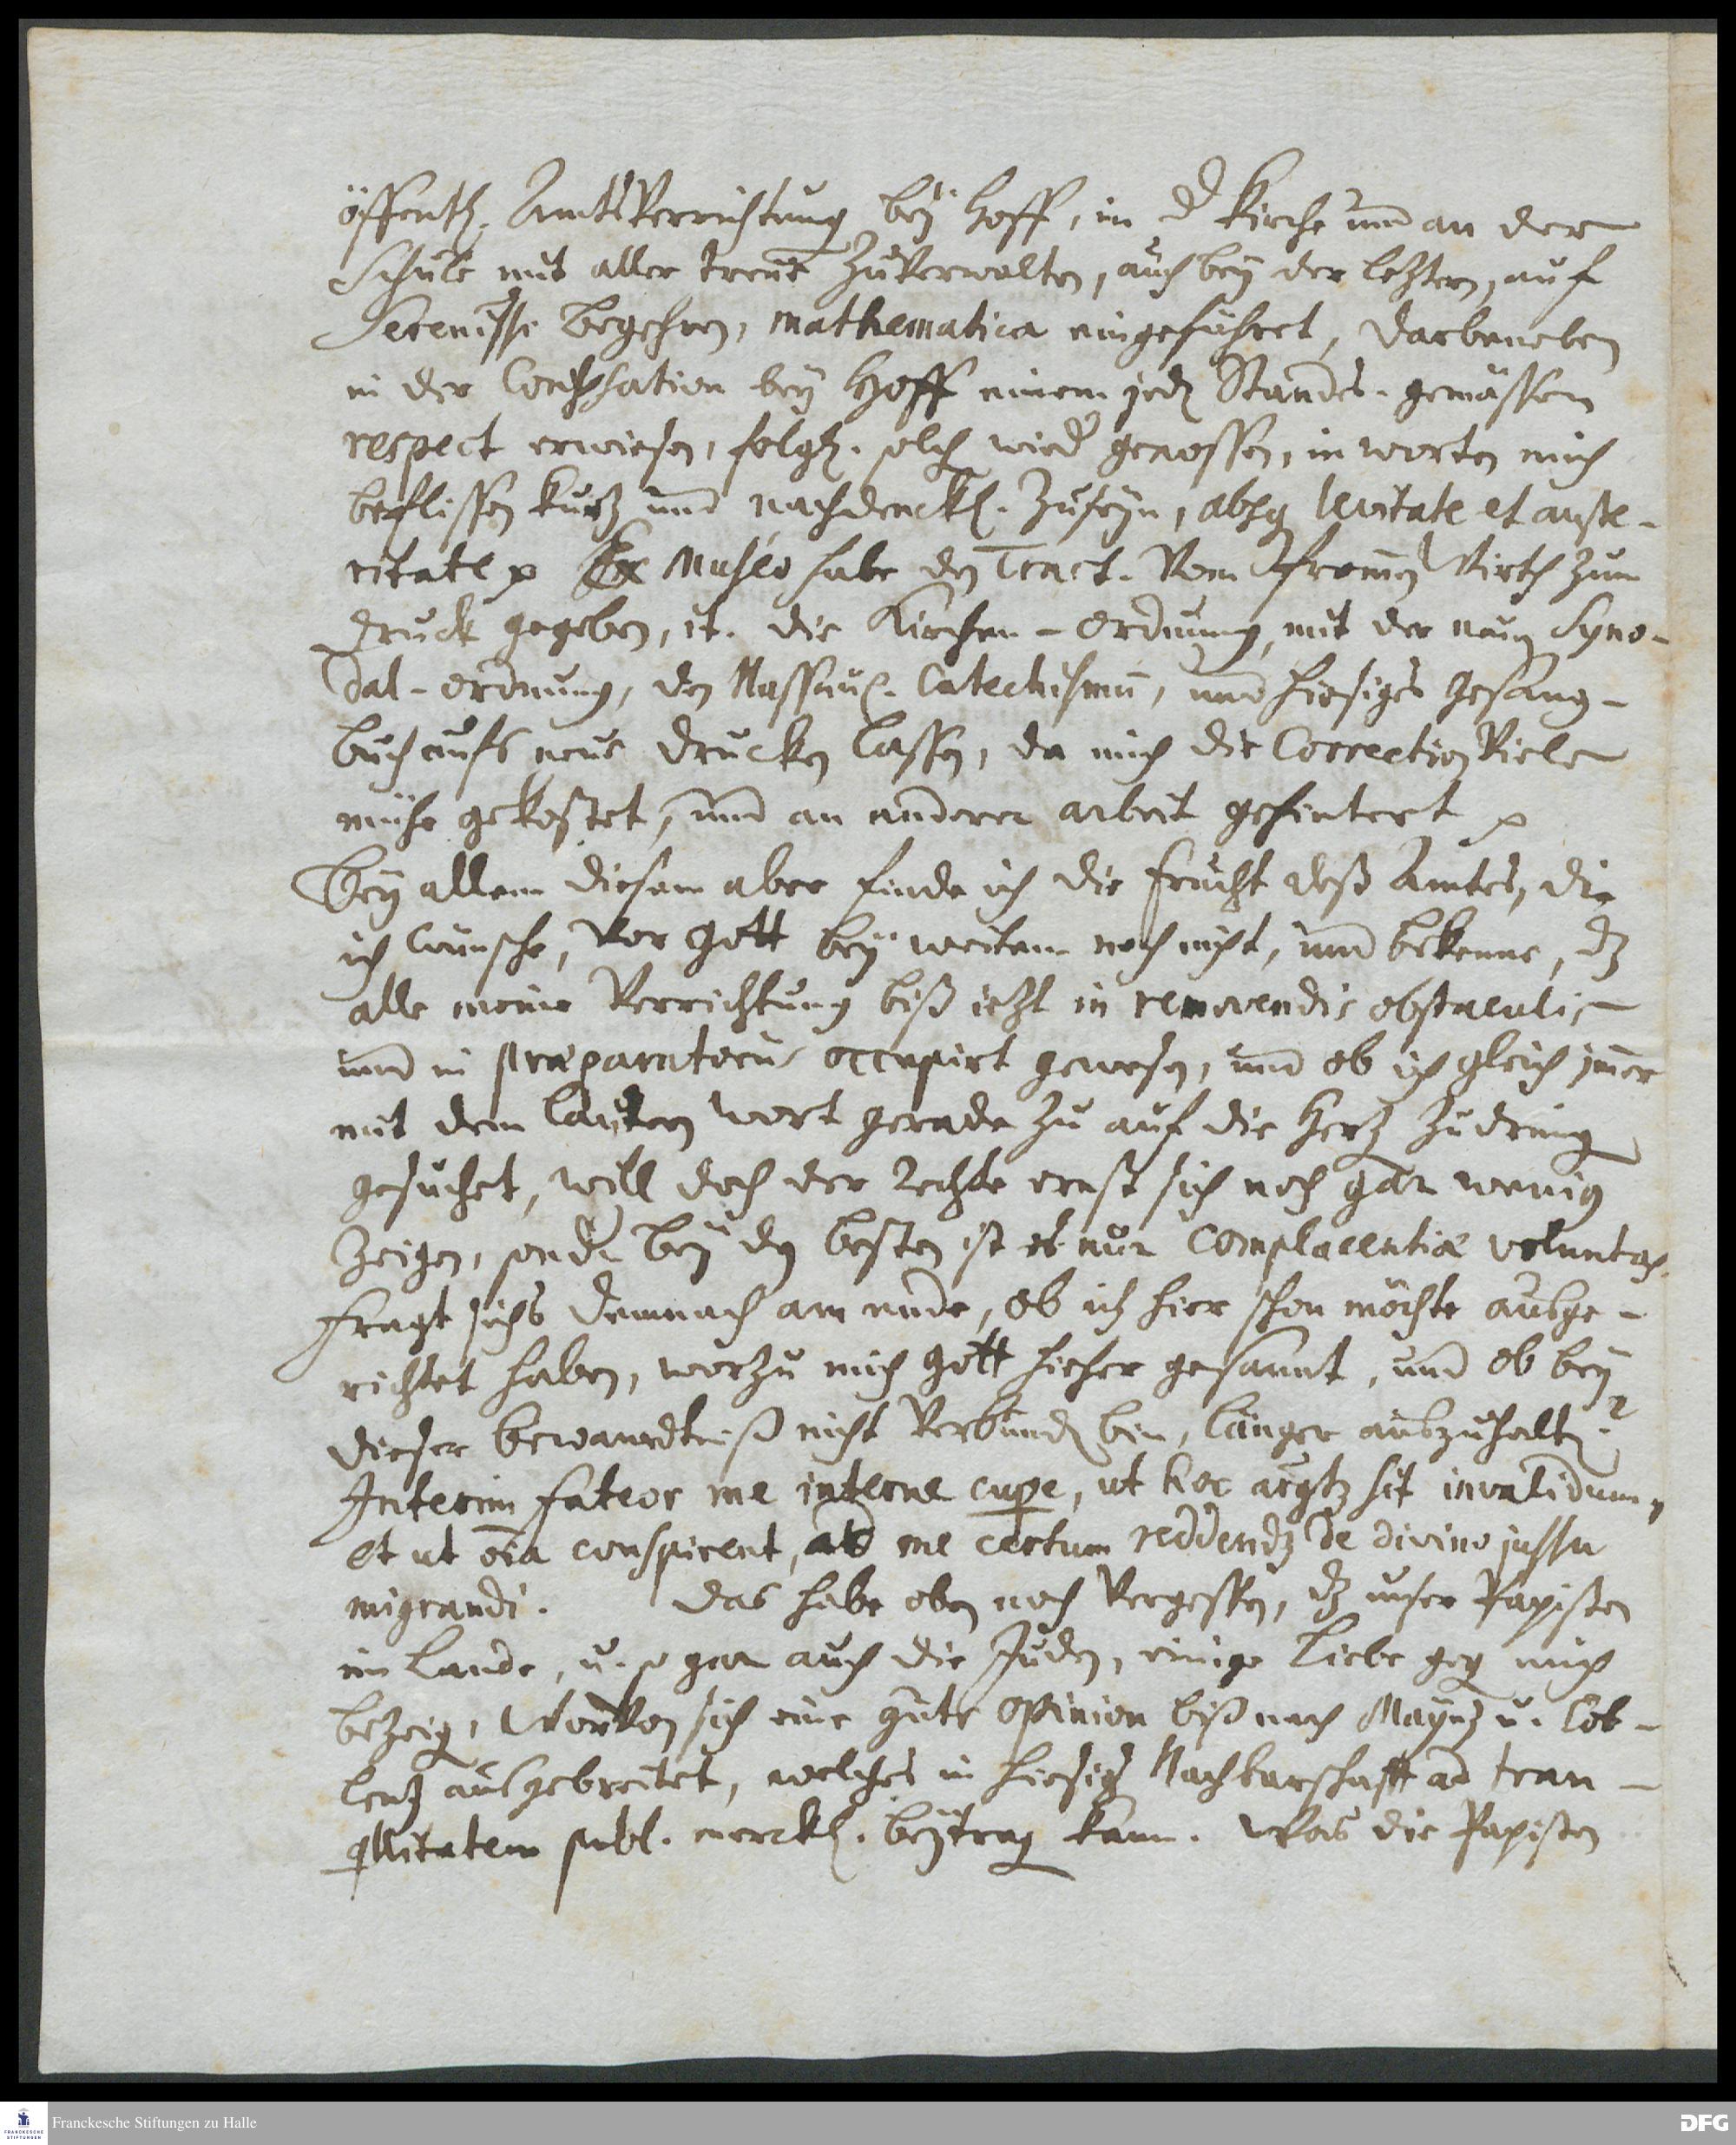 öffentl. AmtsVerrichtung bey Hoff, in d. Kirche und an der
Schule mit aller treue zuverwalten, auch bey der letztern, auf
Serenissi begehren, mathematica eingeführet, darbeneben
in der Conversation bey Hoff einem jedn Standes-gemässen
respect erwiesen, folgl. solch wied. genossen, in worten mich
beflissen kurtz und nachdenckl. zuseyn, absq levitate et auste-
ritate p Ex Museo habe den Tract. Vom frommen Wirth zum
Druck gegeben, it. die Kirchen-Ordnung, mit der neuen Syno-
dal-ordnung, den Nassauis. Catechismu, und hiesiges Gesang-
buch aufs neue drucken lassen, da mich die Correction Viele
mühe gekostet, und an anderer arbeit gehintert p
Bey allem diesem aber finde ich die frucht deß Amtes, die
ich wünsche, vor Gott bey weitem noch nicht, und bekenne, dz
alle meine Verrichtung biß ietzt in removendis obstaculis
und in præparatoriis occupirt gewesen, und ob ich gleich jmer
mit dem lautern wort gerade zu auf die Hertz zudring
gesuchet, will doch der rechte ernst sich noch gar wenig
zeigen, sond. bey den besten ist es nur complacentiæ voluntas.
fragt sichs demnach am ende, ob ich hier schon möchte ausge-
richtet haben, worzu mich Gott hieher gesannt, und ob bey
dieser bewandtniß nicht Verbunden bin, länger auszuhalten?
Interim fateor me interne cupe, ut hoc argtz sit invalidum,
et ut oia conspirent, ad me certum reddendz de divino jussu
migrandi. Das habe oben noch Vergessen, dz unser Papisten
im Lande, u. so gar auch die Juden, einige Liebe geg mich
bezeig, Worvon sich eine gute opinion biß nach Mayntz u. Cob-
lentz ausgebreitet, welches in hiesigr Nachbarschafft ad tran-
qllitatem publ. merckl. beytrag kann. Was die Papisten
Franckesche Stiftungen zu Halle
DFG